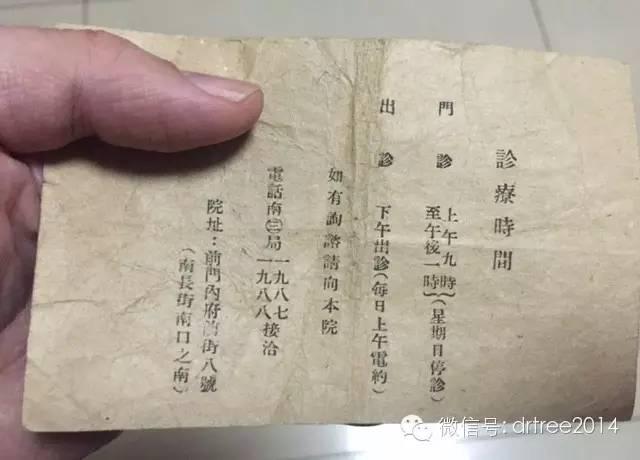 診療時間
門診 上午九時至午後一時(星期日停診)
出診 下午出診(每日上午電約)
如有詢諮請向本院
電話南㊂局一九八七一九八八接洽
院址：前門內府前街八號
(南長街南口之南)
微信号: drtree2014